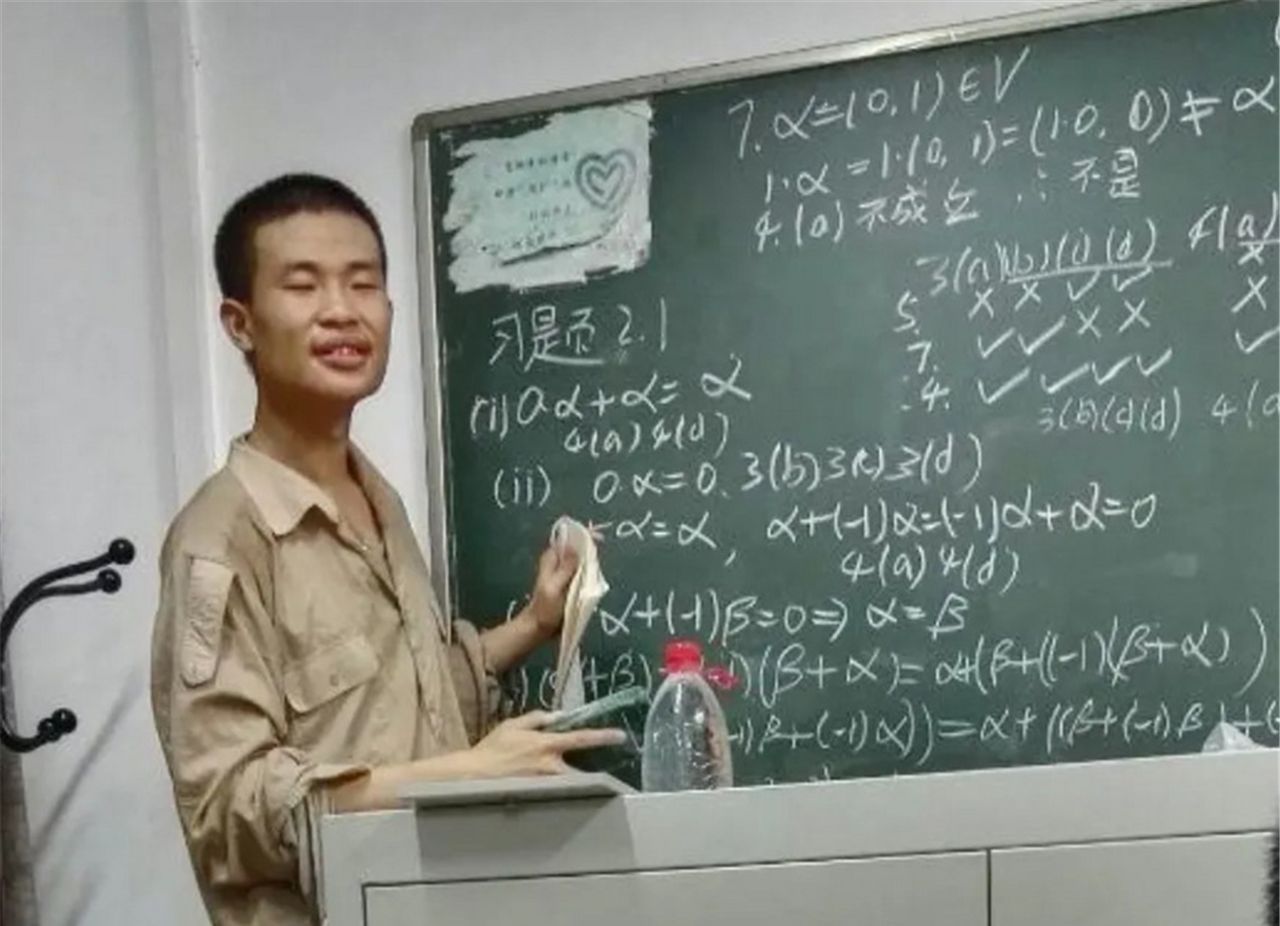 7. α=(0,1)∈V
1·α=1·(0,1)=(1·0, 0)≠α
4.(a)不成立 ∴不是
3(a)(b)(c)(d) 4(a)
5. × × ✓ ✓ ×
7. ✓ ✓ × × ×
4. ✓ ✓ ✓ ✓ ✓
3(b)(c)(d) 4(a
习题 2.1
(i) 0α+α=α
4(a) 4(d)
(ii) 0·α=0. 3(b) 3(c) 3(d)
α=α, α+(-1)α=(-1)α+α=0
4(a) 4(d)
α+(-1)β=0⇒α=β
+β) (β+α)=α+(β+((-1)(β+α))
1)β+(-1)α))=α+((β+(-1)β)+(